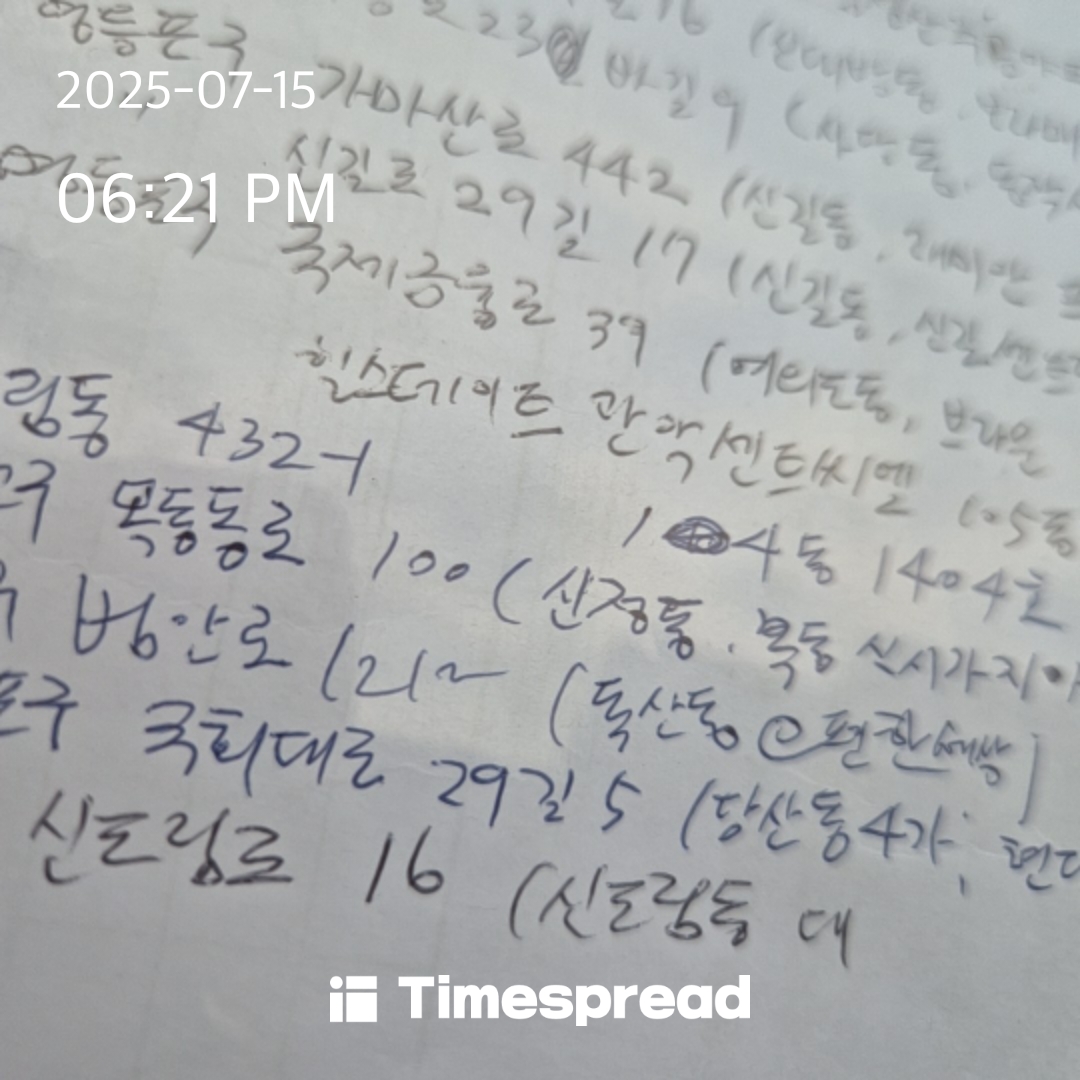 2025-07-15
06:21 PM
영등포구
23 바길 9 (사당동,
가마산로 442 (신길동, 래미안
신길로 29길 17 (신길동, 신길센트
국제금융로 39 (여의도동, 브라운
힐스테이트 관악센트씨엘 105동
림동 432-1
1 4동 1404호
구 목동동로 100 (신정동, 목동 신시가지아
범안로 1212 (독산동 e편한세상)
포구 국회대로 29길 5 (당산동4가, 현대
신도림로 16 (신도림동 대
Timespread